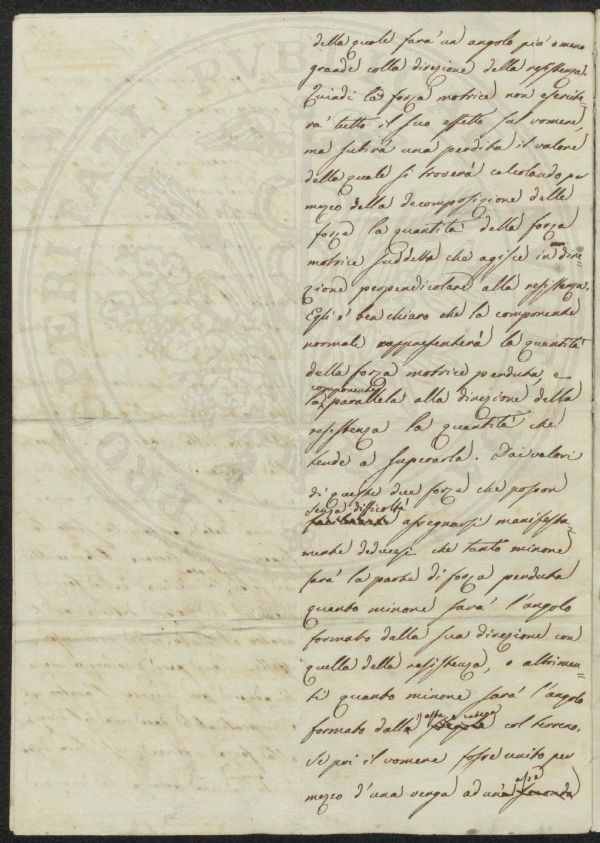 della quale farà un angolo più o meno
grande colla direzione della resistenza.
Quindi la forza motrice non esercite-
rà tutto il suo effetto sul vomere,
ma subirà una perdita il valore
della quale si troverà calcolando per
mezzo della decomposizione delle
forze la quantità della forza
motrice suddetta che agisce in dire-
zione perpendicolare alla resistenza.
Egli è ben chiaro che la componente
normale rappresenterà la quantità
della forza motrice perduta, e
componente
la parallela alla direzione della
resistenza la quantità che
tende a superarla. Dai valori
di queste due forze che posson
senza difficoltà
facilmente assegnarsi manifesta-
mente deducesi che tanto minore
sarà la parte di forza perduta
quanto minore sarà l'angolo
formato dalla sua direzione con
quella della resistenza, o altrimen-
ti quanto minore sarà l'angolo
asta o verga
formato dalla col terreno.
Se poi il vomere fosse unito per
assa
mezzo d'una verga ad una